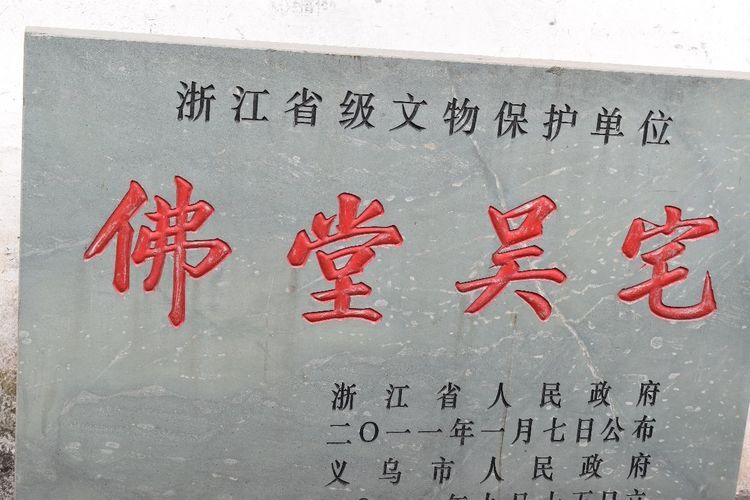 浙江省级文物保护单位
佛堂吴宅
浙江省人民政府
二〇一一年一月七日公布
义乌市人民政府